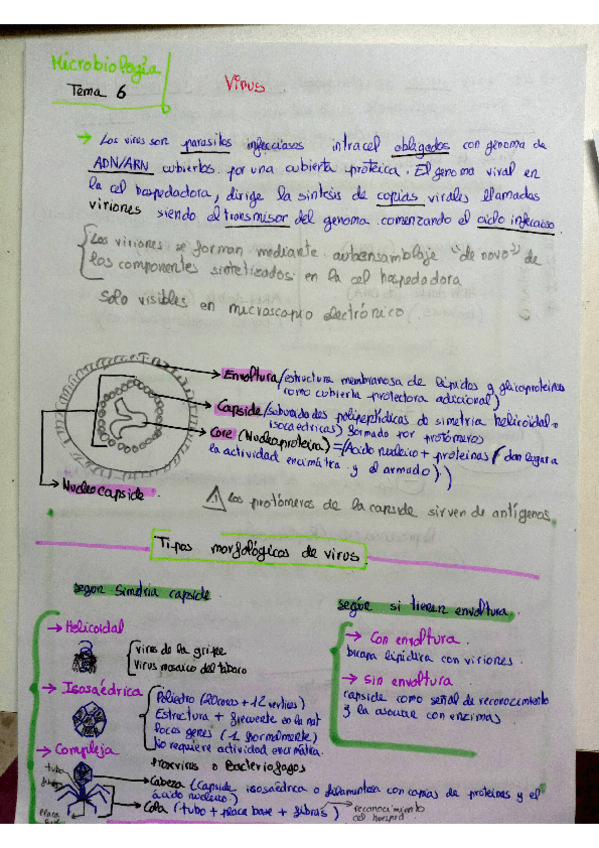 Microbiología
Tema 6
Virus
→ Los virus son parasitos infecciosos intracel obligados con genoma de
ADN/ARN cubiertos por una cubierta protéica. El genoma viral en
la cel hospedadora, dirige la sintesis de copias virales llamadas
viriones siendo el transmisor del genoma comenzando el ciclo infeccioso.
Los viriones se forman mediante autoensamblaje "de novo" de
los componentes sintetizados en la cel hospedadora
Solo visibles en microscopio electrónico.
Envoltura/estructura membranosa de lípidos y glicoproteinas
como cubierta protectora adicional)
Capside/subunidades polipeptídicas de simetria helicoidal o
isocaedricas) formado por protómeros
Core (Nucleoproteina) = (Acido nucleico + proteinas (dan lugar a
la actividad enzimática y el armado))
Nucleocapside
⚠ Los protómeros de la capside sirven de antígenos
Tipos morfológicos de virus.
según simetria capside
según si tienen envoltura
→ Helicoidal
virus de la gripe
Virus mosaico del tabaco
→ Isosaédrica
Poliedro (20 caras + 12 vertices)
Estructura + frecuente en la nat
Pocos genes (1 normalmente)
No requiere actividad enzimática.
→ Compleja
Poxvirus o Bacteriofagos
Cabeza (Capside isosaédrica o filamentosa con copias de proteinas y el
ácido nucleico)
Cola (tubo + placa base + fibras)
reconocimiento
cel hosped
tubo
fibras
Placa
base
→ Con envoltura.
bicapa lipídica con viriones.
→ sin envoltura
capside como señal de reconocimiento
y la asocian con enzimas